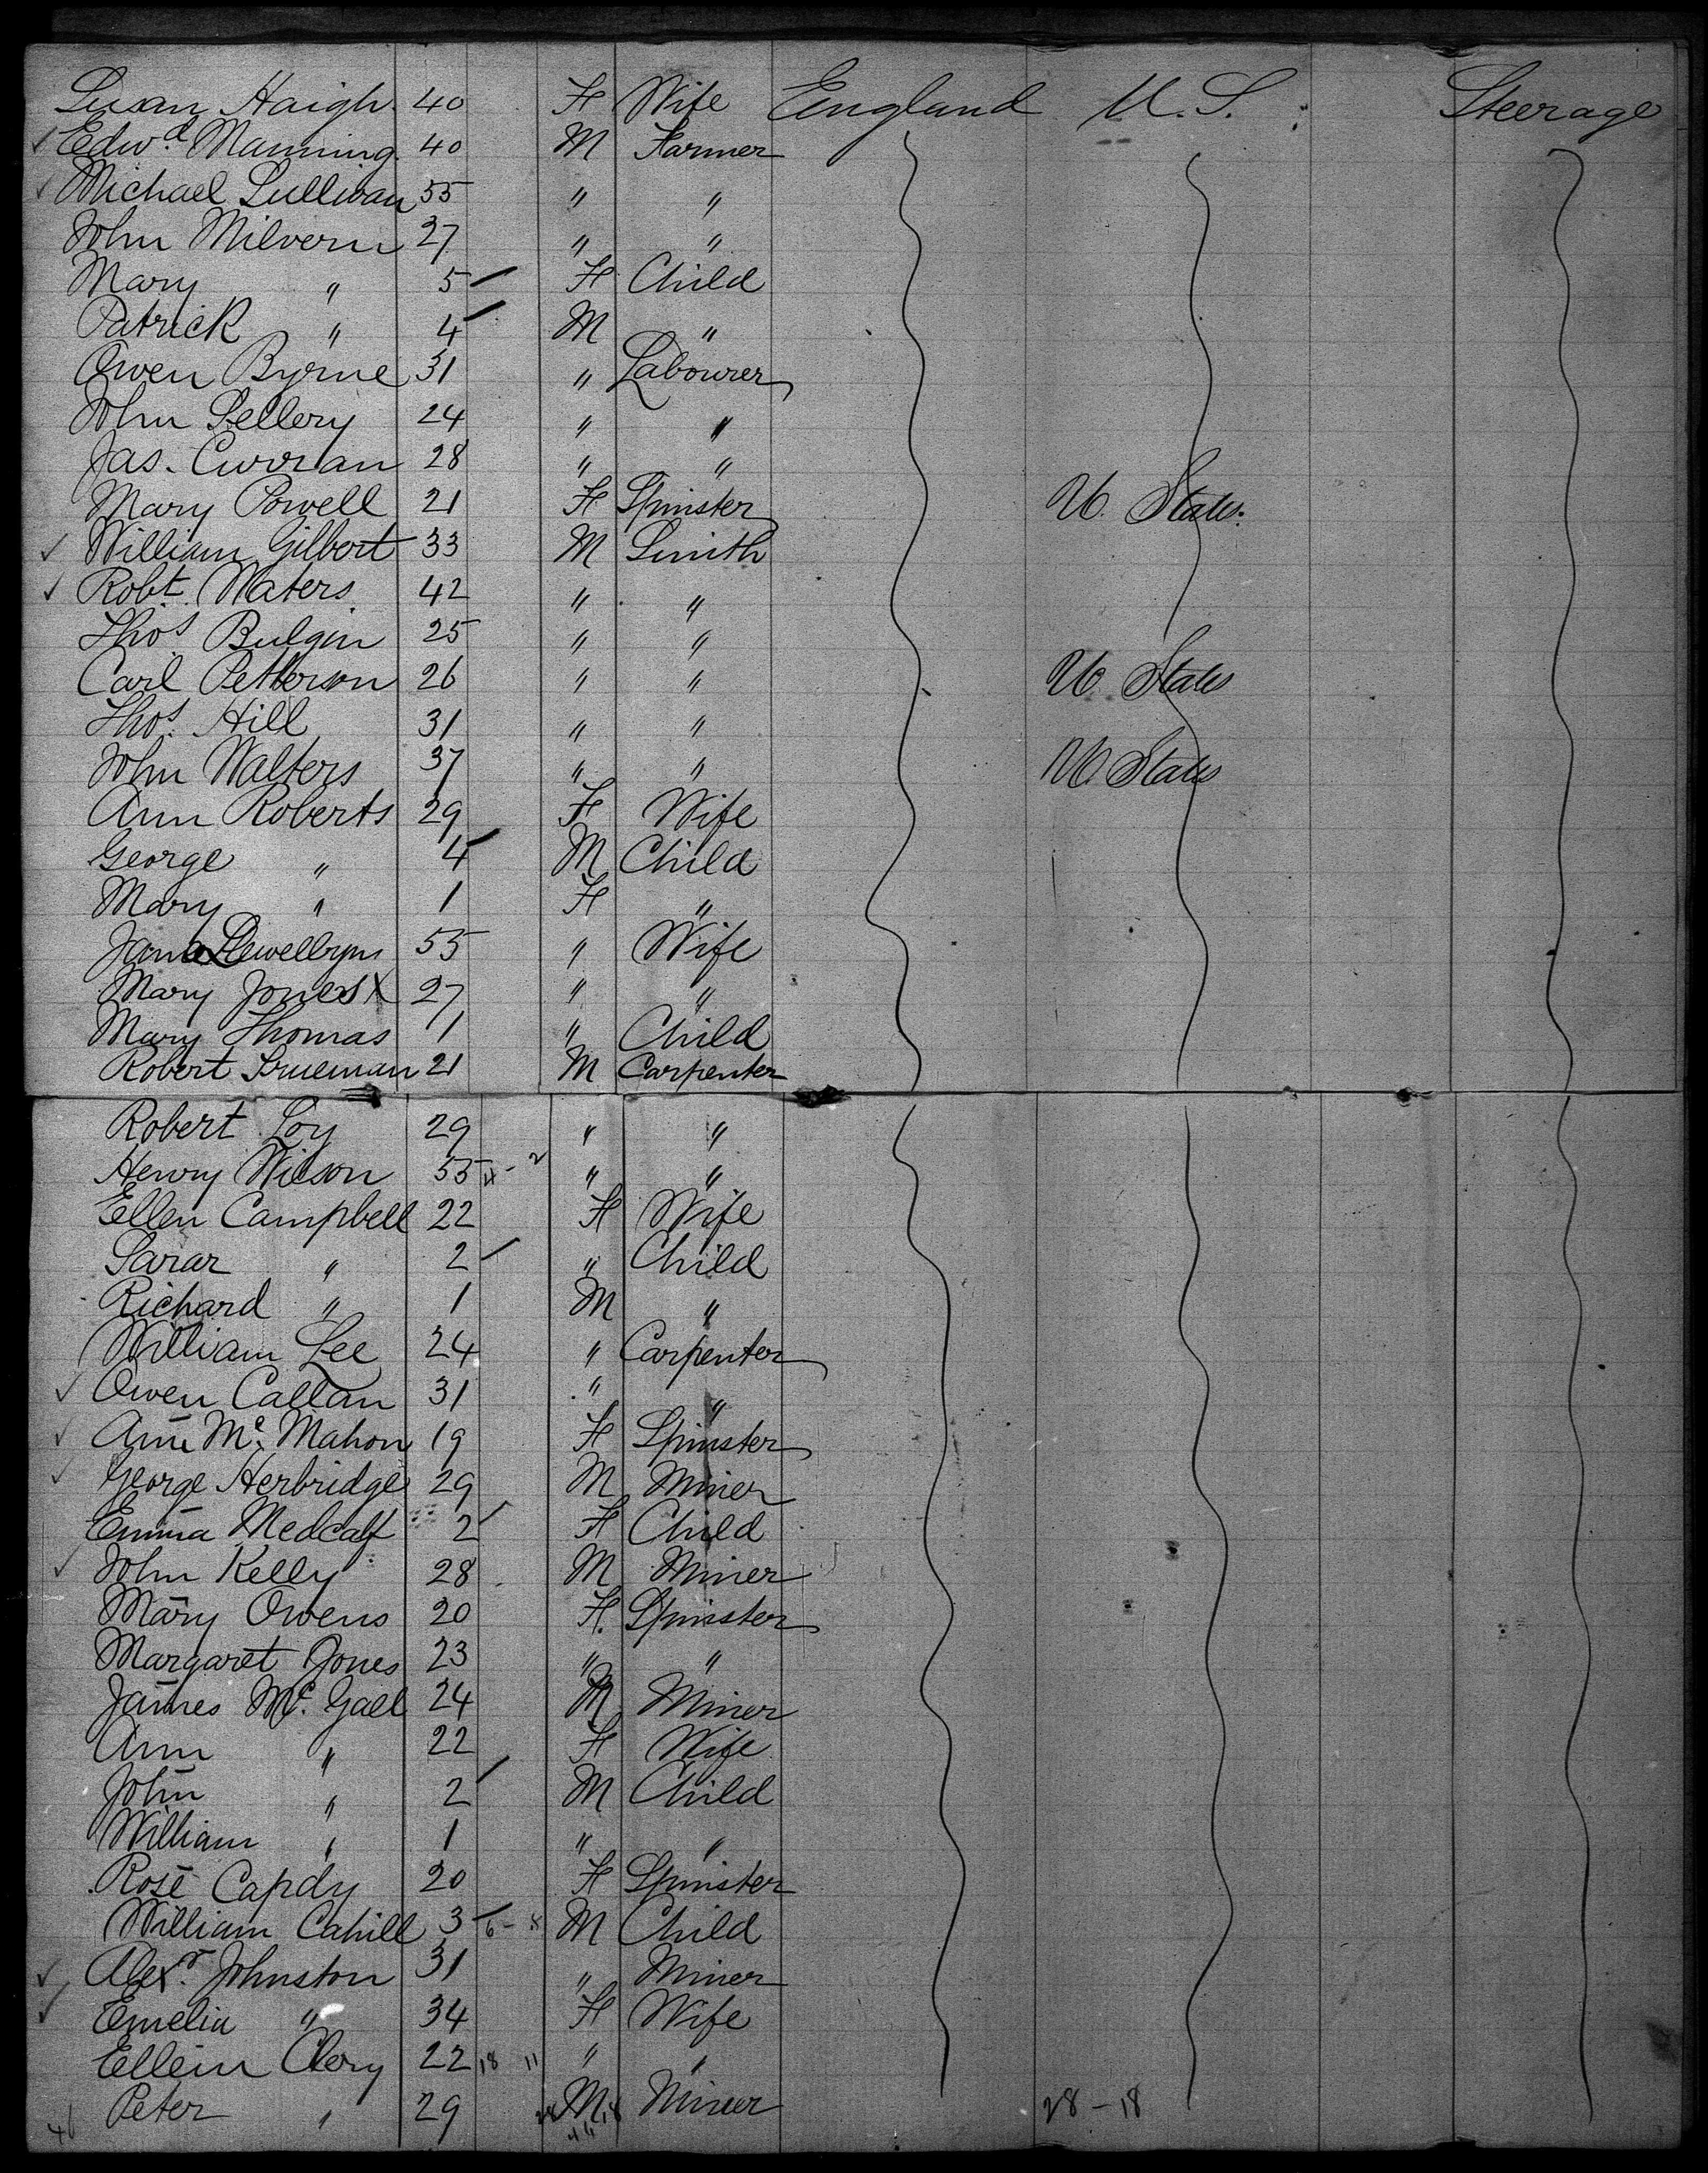 Susan Haigh 40 F Wife England U.S. Steerage
Edwd Manning 40 M Farmer
Michael Sullivan 55 " "
John Milvern 27 " "
Mary " 5 F Child
Patrick " 4 M "
Owen Byrne 31 " Labourer
John Sellery 24 " "
Jas. Curran 28 " "
Mary Powell 21 F Spinster U. States
William Gilbert 33 M Smith
Robt Waters 42 " "
Thos Bulgin 25 " "
Carl Petterson 26 " " U. States
Thos Hill 31 " "
John Walters 37 " " U States
Ann Roberts 29 F Wife
George " 4 M Child
Mary " 1 F "
Jane Llewellyn 55 " Wife
Mary Jones X 27 " "
Mary Thomas 1 " Child
Robert Trueman 21 M Carpenter
Robert Loy 29 " "
Henry Wilson 55 " "
Ellen Campbell 22 F Wife
Sarar " 2 " Child
Richard " 1 M "
William Lee 24 " Carpenter
Owen Callan 31 " "
Ann Mc Mahon 19 F Spinster
George Herbridge 29 M Miner
Emma Medcalf 2 F Child
John Kelly 28 M Miner
Mary Owens 20 F. Spinster
Margaret Jones 23 " "
James Mc. Gall 24 M Miner
Ann " 22 F Wife
John " 2 M Child
William " 1 " "
Rose Capdy 20 F Spinster
William Cahill 3 6 - 8 M Child
Alexr Johnston 31 " Miner
Emelia " 34 F Wife
Ellein Clery 22 18 11 " "
Peter " 29 M Miner 28 - 18
46